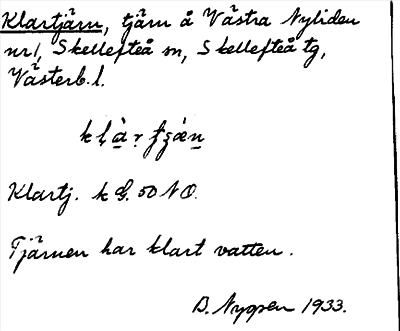 Klartjärn, tjärn å Västra Nyliden
nr 1, Skellefteå sn, Skellefteå tg,
Västerb. l.
Klartj. k G. 50 NO.
Tjärnen har klart vatten.
D. Nygren 1933.